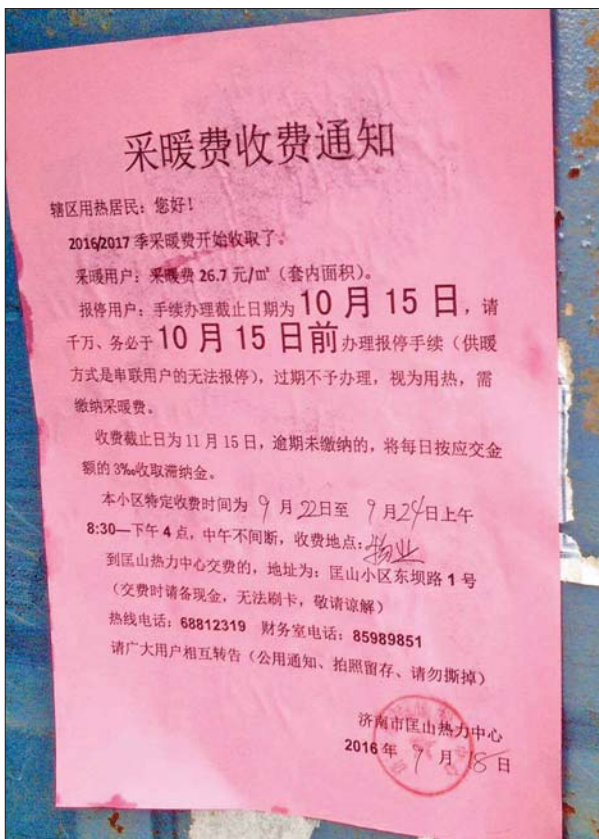 采暖费收费通知
辖区用热居民：您好！
2016/2017 季采暖费开始收取了。
采暖用户：采暖费 26.7 元/㎡（套内面积）。
报停用户：手续办理截止日期为 10 月 15 日，请
千万、务必于 10 月 15 日前办理报停手续（供暖
方式是串联用户的无法报停），过期不予办理，视为用热，需
缴纳采暖费。
收费截止日为 11 月 15 日，逾期未缴纳的，将每日按应交金
额的 3‰收取滞纳金。
本小区特定收费时间为 9 月 22日至 9 月24日上午
8:30—下午 4 点，中午不间断，收费地点：物业
到匡山热力中心交费的，地址为：匡山小区东坝路 1 号
（交费时请备现金，无法刷卡，敬请谅解）
热线电话：68812319 财务室电话：85989851
请广大用户相互转告（公用通知、拍照留存、请勿撕掉）
济南市匡山热力中心
2016 年 9 月 18 日